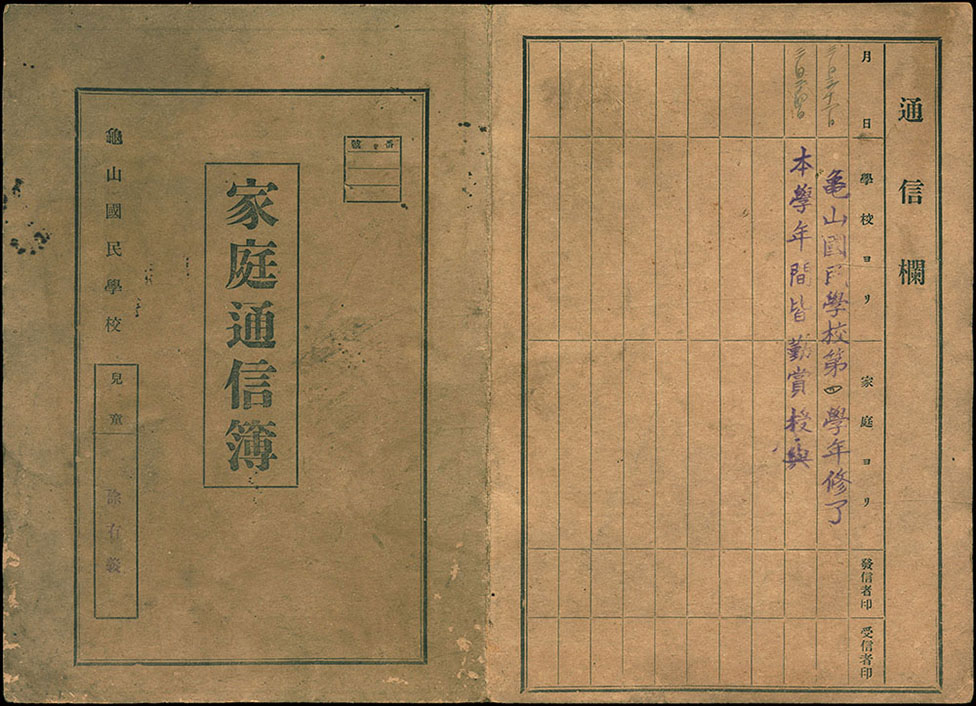 通信欄
月 日 學校ヨリ 家庭ヨリ 發信者印 受信者印
亀山國民學校第四學年修了
本學年間皆勤賞授與
番號
家庭通信簿
龜山國民學校
兒童